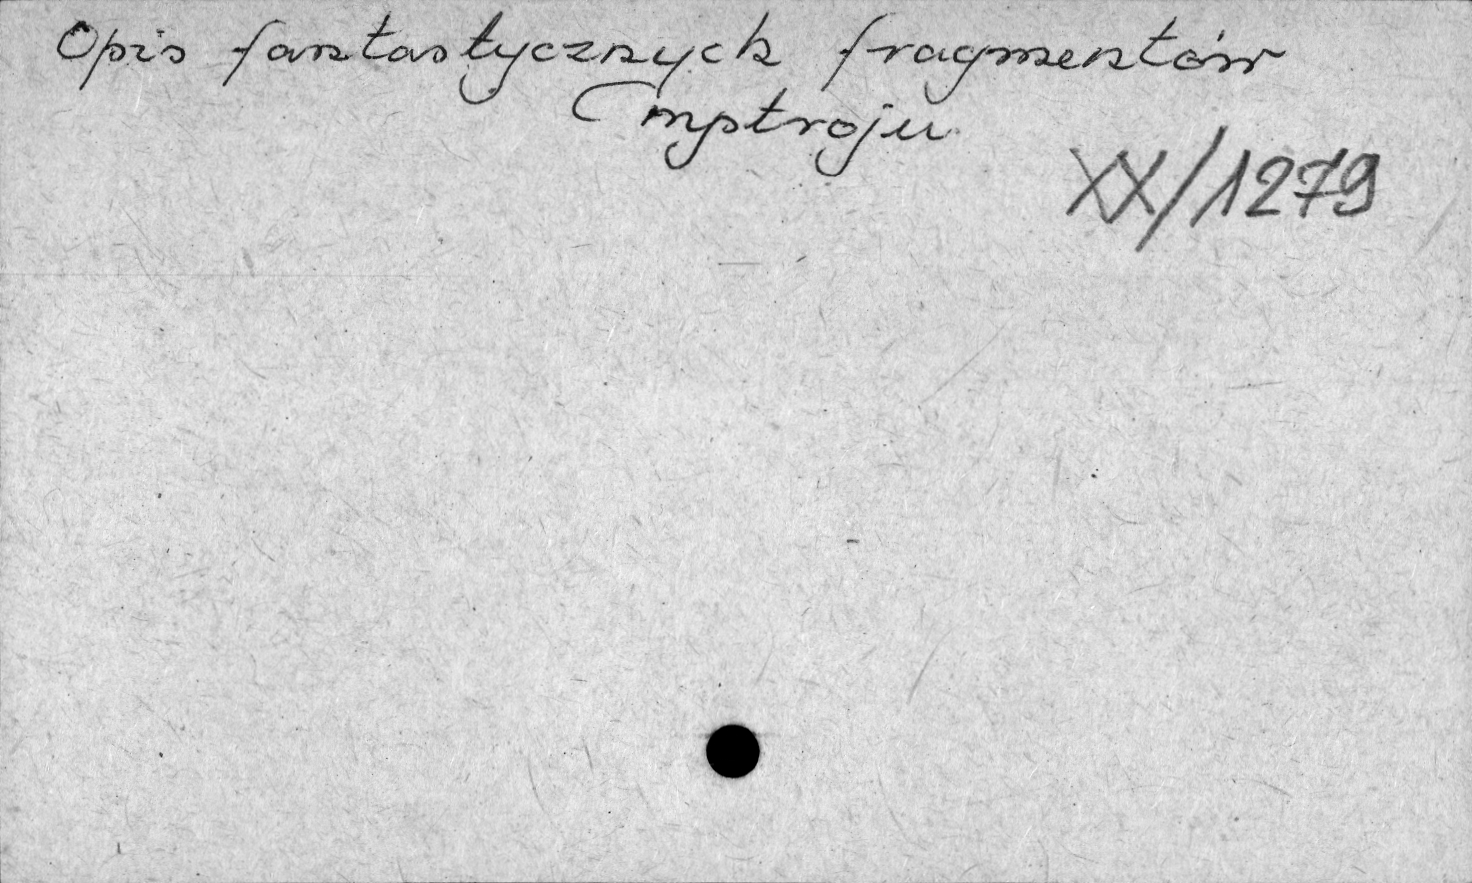 Opis fantastycznych fragmentów
wystroju
XX/1279